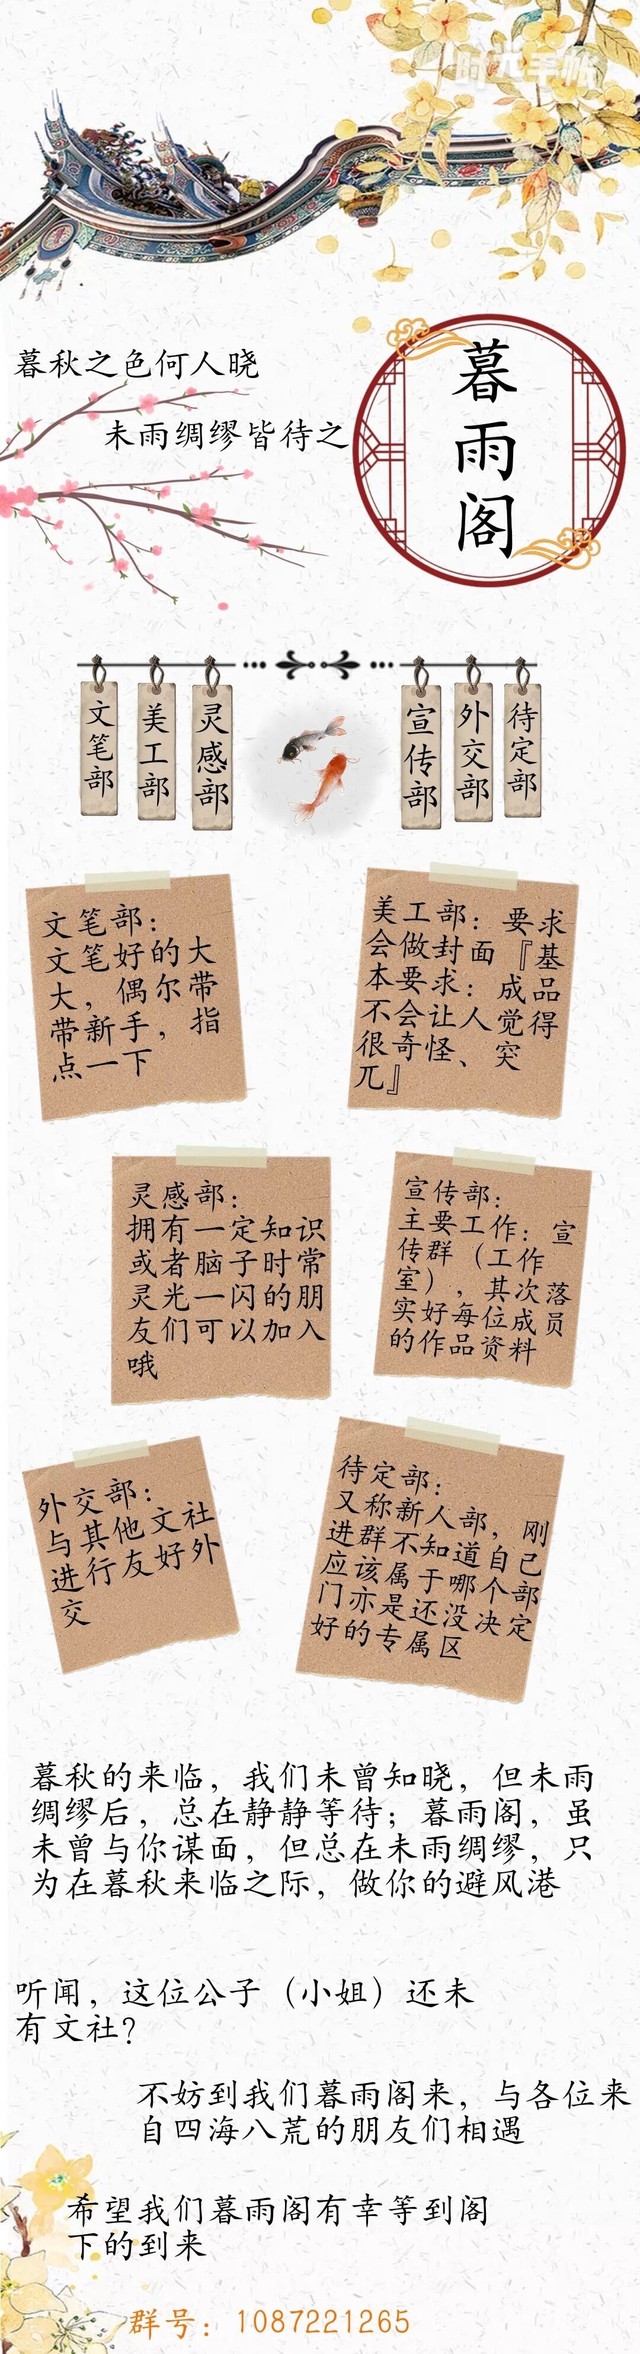 时光手帐
暮秋之色何人晓
未雨绸缪皆待之
暮雨阁
文笔部
美工部
灵感部
宣传部
外交部
待定部
文笔部：
文笔好的大
大，偶尔带
带新手，指
点一下
美工部：要求
会做封面『基
本要求：成品
不会让人觉得
很奇怪、突
兀』
灵感部：
拥有一定知识
或者脑子时常
灵光一闪的朋
友们可以加入
哦
宣传部：
主要工作：宣
传群（工作
室），其次落
实好每位成员
的作品资料
外交部：
与其他文社
进行友好外
交
待定部：
又称新人部，刚
进群不知道自己
应该属于哪个部
门亦是还没决定
好的专属区
暮秋的来临，我们未曾知晓，但未雨
绸缪后，总在静静等待；暮雨阁，虽
未曾与你谋面，但总在未雨绸缪，只
为在暮秋来临之际，做你的避风港
听闻，这位公子（小姐）还未
有文社？
不妨到我们暮雨阁来，与各位来
自四海八荒的朋友们相遇
希望我们暮雨阁有幸等到阁
下的到来
群号：1087221265